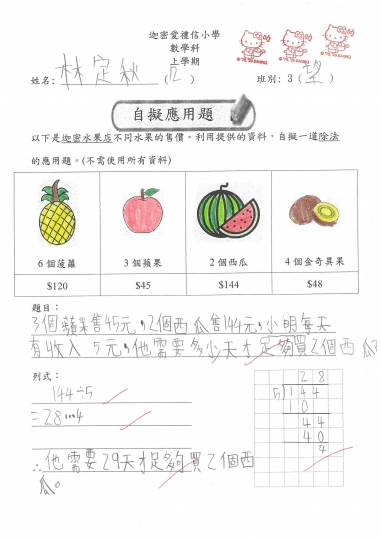 迦密愛禮信小學
數學科
上學期
姓名：林定秋( )　班別：3 (望)
自擬應用題
以下是迦密水果店不同水果的售價。利用提供的資料，自擬一道除法
的應用題。(不需使用所有資料)
6 個菠蘿　3 個蘋果　2 個西瓜　4 個金奇異果
$120　$45　$144　$48
題目：
3個蘋果售45元，2個西瓜售144元，小明每天
有收入5元，他需要多少天才足夠買2個西瓜?
列式：
144÷5
=28…4
∴他需要29天才足夠買2個西
瓜。
28
5)144
10
44
40
4